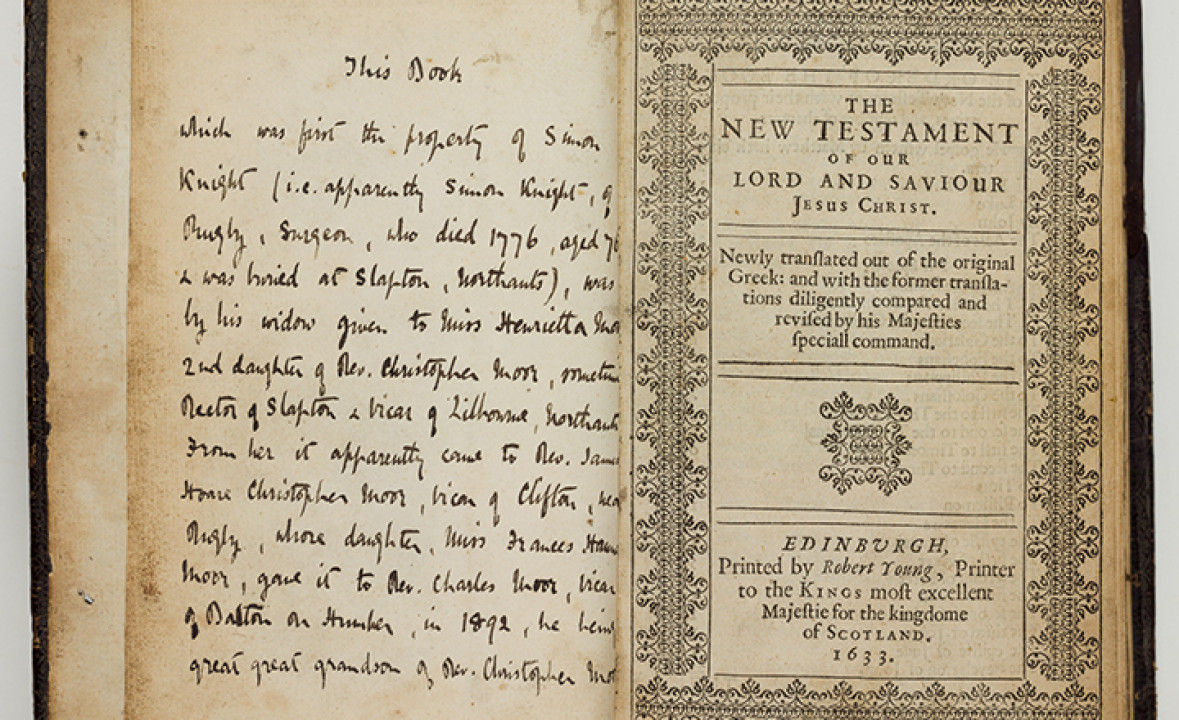 This Book
which was first the property of Simon
Knight (i.e. apparently Simon Knight, of
Rugby, Surgeon, who died 1776, aged 76
& was buried at Slapton, Northants), was
by his widow given to Miss Henrietta Moo
2nd daughter of Rev. Christopher Moor, someti
Rector of Slapton & Vicar of Lilbourne, Northants
From her it apparently came to Rev. James
Hoare Christopher Moor, vicar of Clifton, nea
Rugby, whose daughter, Miss Frances Hoare
Moor, gave it to Rev. Charles Moor, vicar
of Barton on Humber, in 1892, he being
great great grandson of Rev. Christopher Moo
THE
NEW TESTAMENT
OF OUR
LORD AND SAVIOUR
JESUS CHRIST.
Newly tranſlated out of the original
Greek: and with the former tranſla-
tions diligently compared and
reviſed by his Majeſties
ſpeciall command.
EDINBVRGH,
Printed by Robert Young, Printer
to the KINGS moſt excellent
Majeſtie for the kingdome
of SCOTLAND.
1633.